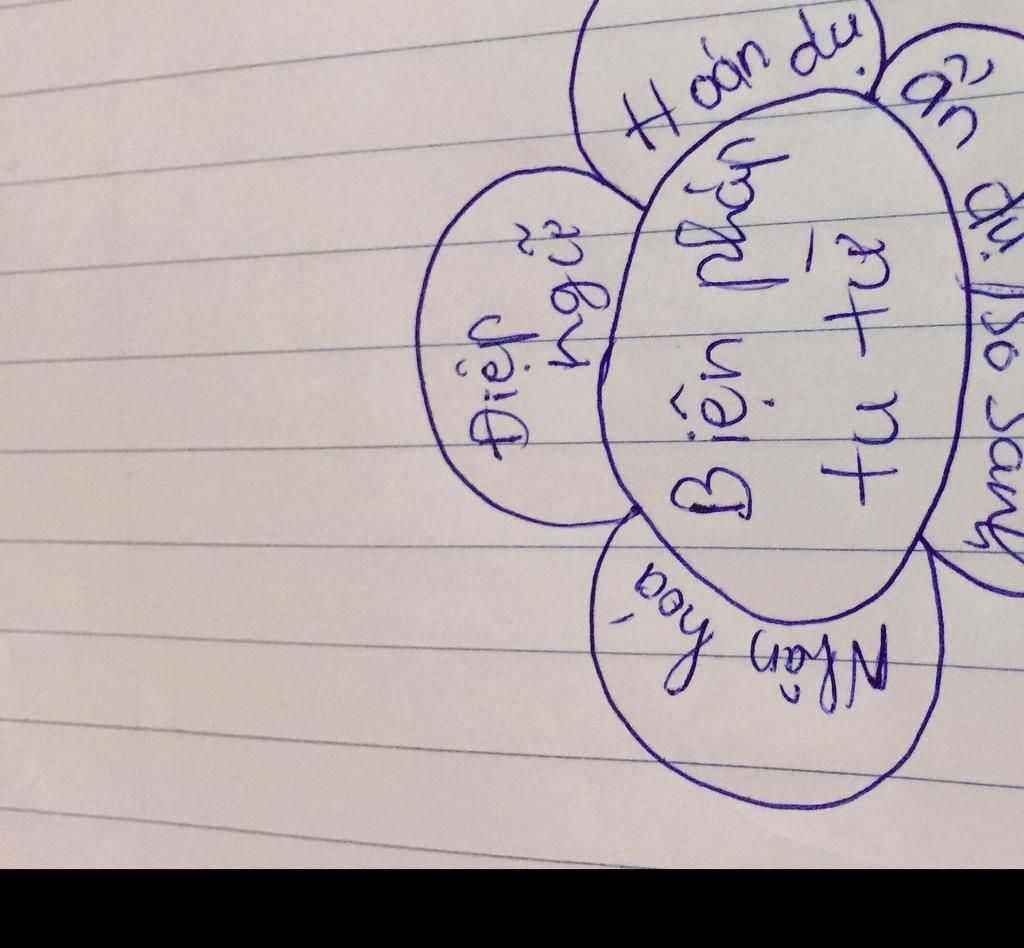 Biện pháp
tu từ
Điệp
ngữ
Hoán dụ
Ẩn dụ
So sánh
Nhân
hóa